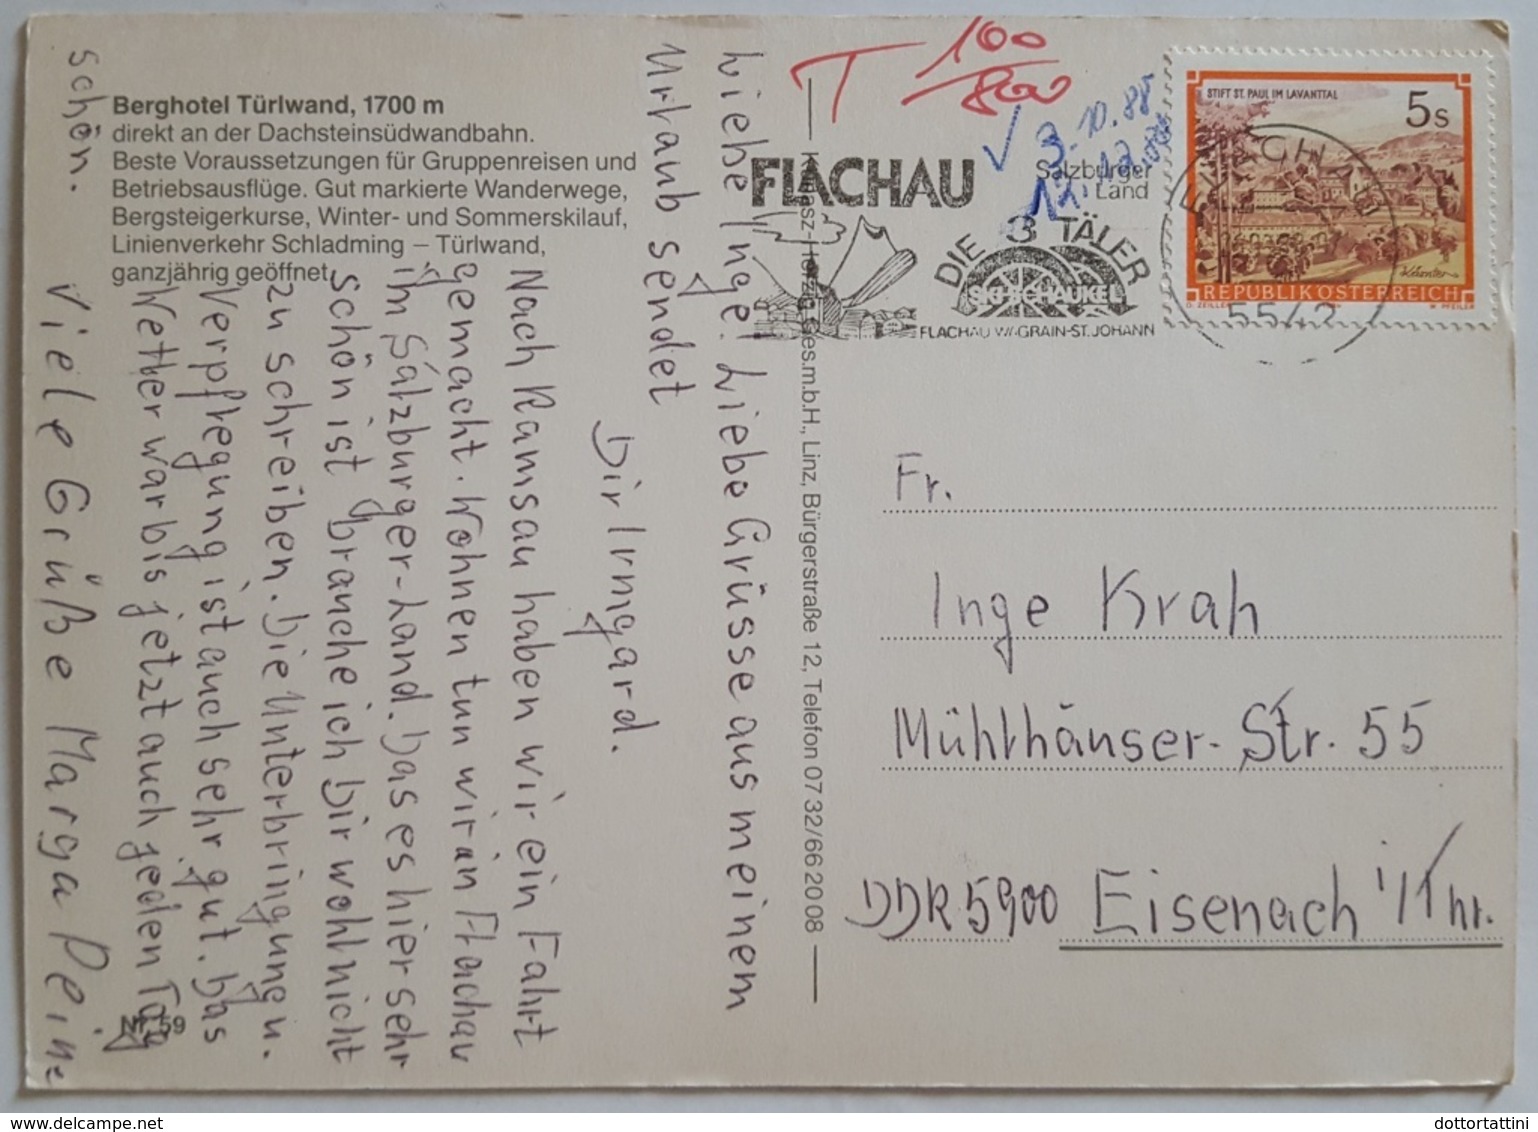 Berghotel Türlwand, 1700 m
direkt an der Dachsteinsüdwandbahn.
Beste Voraussetzungen für Gruppenreisen und
Betriebsausflüge. Gut markierte Wanderwege,
Bergsteigerkurse, Winter- und Sommerskilauf,
Linienverkehr Schladming – Türlwand,
ganzjährig geöffnet.
Liebe Inge! Liebe Grüsse aus meinem
Urlaub sendet
Dir Irmgard.
Nach Ramsau haben wir ein Fahrt
gemacht. Wohnen tun wir in Flachau
im Salzburger-Land. Das es hier sehr
schön ist brauche ich Dir wohl nicht
zu schreiben. Die Unterbringung u.
Verpflegung ist auch sehr gut. Das
Wetter war bis jetzt auch jeden Tag
schön.
Viele Grüße Marga Peine
59
Ges.m.b.H., Linz, Bürgerstraße 12, Telefon 07 32/66 20 08
T 100
800
3.10.88
FLACHAU
Salzburger
Land
DIE 3 TÄLER
SKISCHAUKEL
FLACHAU-WAGRAIN-ST.JOHANN
STIFT ST. PAUL IM LAVANTTAL
5 S
REPUBLIK ÖSTERREICH
O. ZEILLER
W. PFEILER
5542
Fr.
Inge Krah
Mühlhäuser-Str. 55
DDR 5900 Eisenach i/Thr.
dottortattini